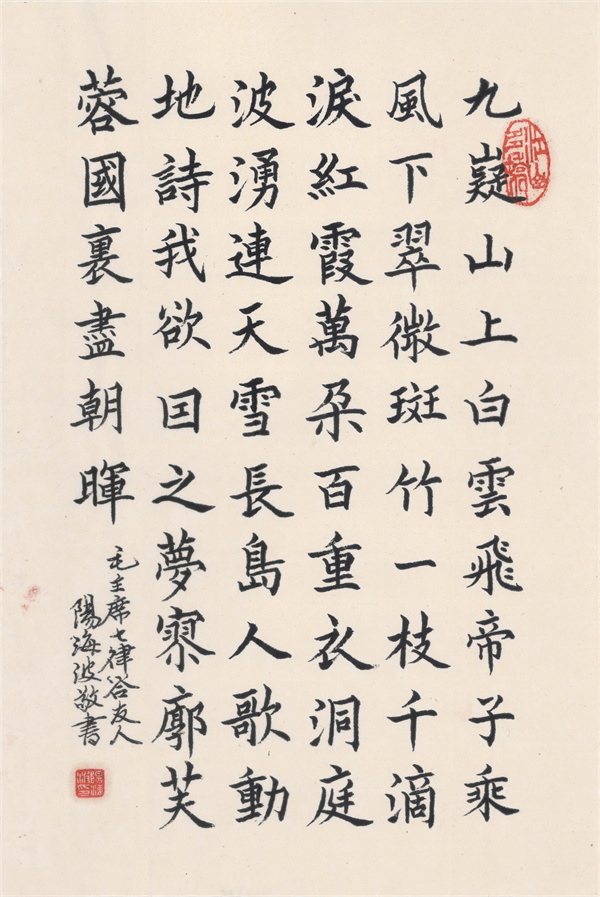 九嶷山上白雲飛帝子乘
風下翠微斑竹一枝千滴
淚紅霞萬朵百重衣洞庭
波湧連天雪長島人歌動
地詩我欲囙之夢寥廓芙
蓉國裏盡朝暉
毛主席七律答友人
陽海波敬書